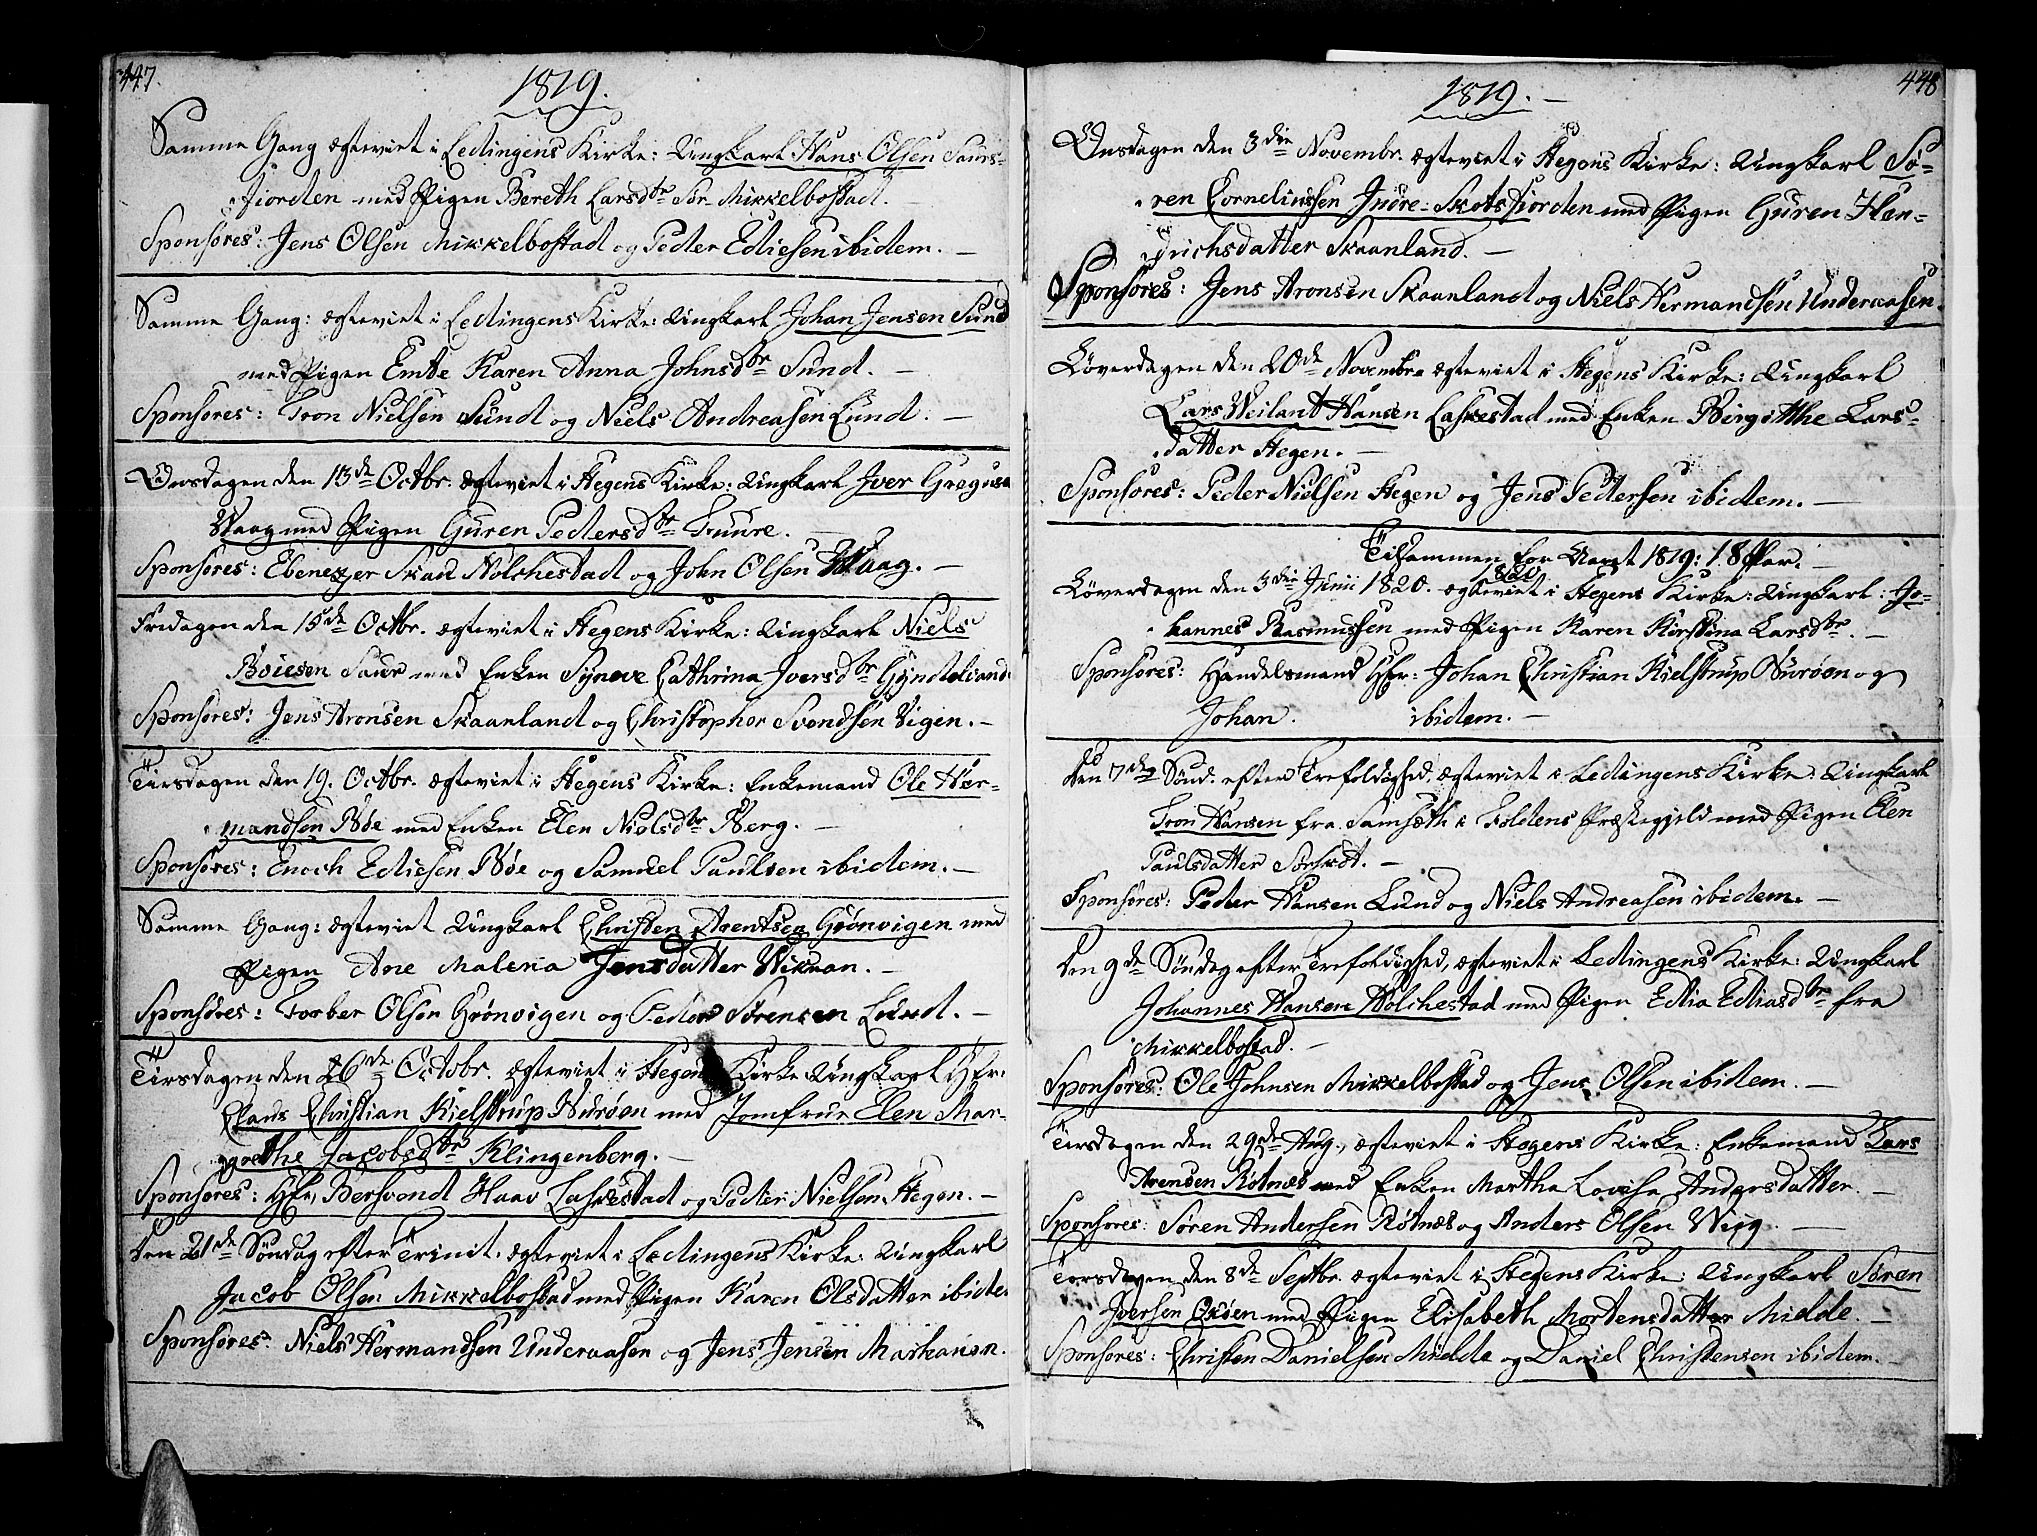 447.
1819.
Samme Gang ægteviet i Ledingens Kirke: Ungkarl Hans Olsen Saurs-
fiorden med Pigen Bereth Larsdtr Sør Mikkelbostad.
Sponsores: Jens Olsen Mikkelbostad og Peder Ediesen ibidem.
Samme Gang: ægteviet i Ledingens Kirke: Ungkarl Johan Jensen Sund
med Pigen Emte Karen Anna Johnsdtr Sund.
Sponsores: Tron Nielsen Sund og Niels Andreasen Lund.
Onsdagen den 13de Octbr. ægteviet i Stegens Kirke: Ungkarl Iver Gregus
Vaag med Pigen Guren Pedersdtr Fuure.
Sponsores: Ebenezer Skau Holchestad og John Olsen Waag.
Fredagen den 15de Octbr. ægteviet i Stegens Kirke: Ungkarl Niels
Boiesen Saur med Enken Synove Cathrina Iversdtr
Sponsores: Jens Aronsen Skaanland og Christopher Svendsen Vigen.
Tirsdagen den 19. Octbr. ægteviet i Stegens Kirke: Enkemand Ole Her-
mandsen Bøe med Enken Elen Nielsdtr Berg.
Sponsores: Enoch Ediesen Bøe og Samuel Paulsen ibidem.
Samme Gang: ægteviet Ungkarl Christen Arentsen Grønvigen med
Pigen Ane Malena Jensdatter Wikran.
Sponsores: Torber Olsen Grønvigen og Peder Sörensen Lund.
Tirsdagen den 26de Octobr. ægteviet i Stegens Kirke Ungkarl Hr.
Claus Christian Kielstrup Nurøen med Jomfrue Elen Mar-
grethe Jacobsdtr Klingenberg.
Sponsores: Hr. Bersvend Haav Laskestad og Peder Nielsen Stegen.
Den 21de Søndag efter Trinit. ægteviet i Ledingens Kirke: Ungkarl
Jacob Olsen Mikkelbostad med Pigen Karen Olsdatter ibide
Sponsores: Niels Hermandsen Underaasen og Jens Jensen
448
1819.
Onsdagen den 3die Novembr. ægteviet i Stegens Kirke: Ungkarl Sø-
ren Corneliussen Indre-Skotsfiorden med Pigen Guren Hen-
drichsdatter Skaanland.
Sponsores: Jens Aronsen Skaanland og Niels Hermandsen Underaasen.
Löverdagen den 20de Novembr. ægteviet i Stegens Kirke: Ungkarl
Lars Weilant Hansen Laskestad med Enken Birgitthe Lars-
datter Stegen.
Sponsores: Peder Nielsen Stegen og Jens Pedersen ibidem.
Tilsammen for Aaret 1819: 18 Par.
1820
Löverdagen den 3die Junii 1820. ægteviet i Stegens Kirke: Ungkarl: Jo-
hannes Rasmussen med Pigen Karen Kirstina Larsdtr.
Sponsores: Handelsmand Hr: Johan Christian Kielstrup Nurøen og
Johan. ibidem.
Den 7de Sønd. efter Trefoldighed, ægteviet i Ledingens Kirke: Ungkarl
Tron Hansen fra Samsæth i Foldens Præstegjeld med Pigen Elen
Paulsdatter Sørskot.
Sponsores: Peder Hansen Lund og Niels Andreasen ibidem.
Den 9de Søndag efter Trefoldighed, ægteviet i Ledingens Kirke: Ungkarl
Johannes Hansen Holchestad med Pigen Edia Ediasdtr fra
Mikkelbostad.
Sponsores: Ole Johnsen Mikkelbostad og Jens Olsen ibidem.
Tirsdagen den 29de Aug., ægteviet i Stegens Kirke: Enkemand Lars
Arensen Rotnæs med Enken Martha Lovisa Andersdatter.
Sponsores: Søren Andersen Rotnæs og Anders Olsen Wiig.
Torsdagen den 8de Septbr. ægteviet i Stegens Kirke: Ungkarl Søren
Iversen Oxøen med Pigen Elisabeth Mortensdatter Midde.
Sponsores: Christen Danielsen Midde og Daniel Christensen ibidem.